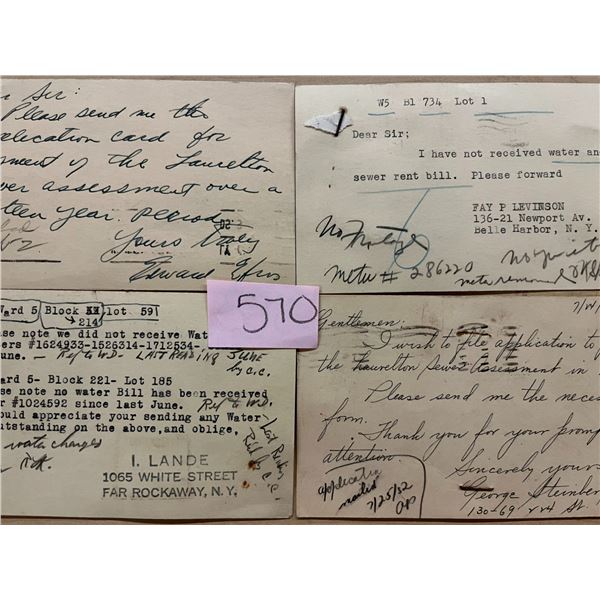 Sir:
Please send me the
application card for
ment of the Laurelton
er assessment over a
teen year period
Yours truly
Edward Efros
W5 Bl 734 Lot 1
Dear Sir;
I have not received water and
sewer rent bill. Please forward
FAY P LEVINSON
136-21 Newport Av.
Belle Harbor, N. Y.
meter # 286220
meter removed
570
Ward 5 Block lot 59
214
se note we did not receive Wat
ers #1624933-1526314-1712534-
une. - Ref to W.D. - LAST READING JUNE
by C.C.
ard 5- Block 221- Lot 185
se note no water Bill has been received
r #1024592 since last June. Ref to W.D.
ould appreciate your sending any Water
outstanding on the above,and oblige,
water charges
I. LANDE
1065 WHITE STREET
FAR ROCKAWAY, N.Y.
Gentlemen:
I wish to file application to
the Laurelton Sewer Assessment in
Please send me the neces
form.
Thank you for your promp
attention.
Sincerely yours
George Steinber
130-69 224 St.
application
mailed
7/25/52